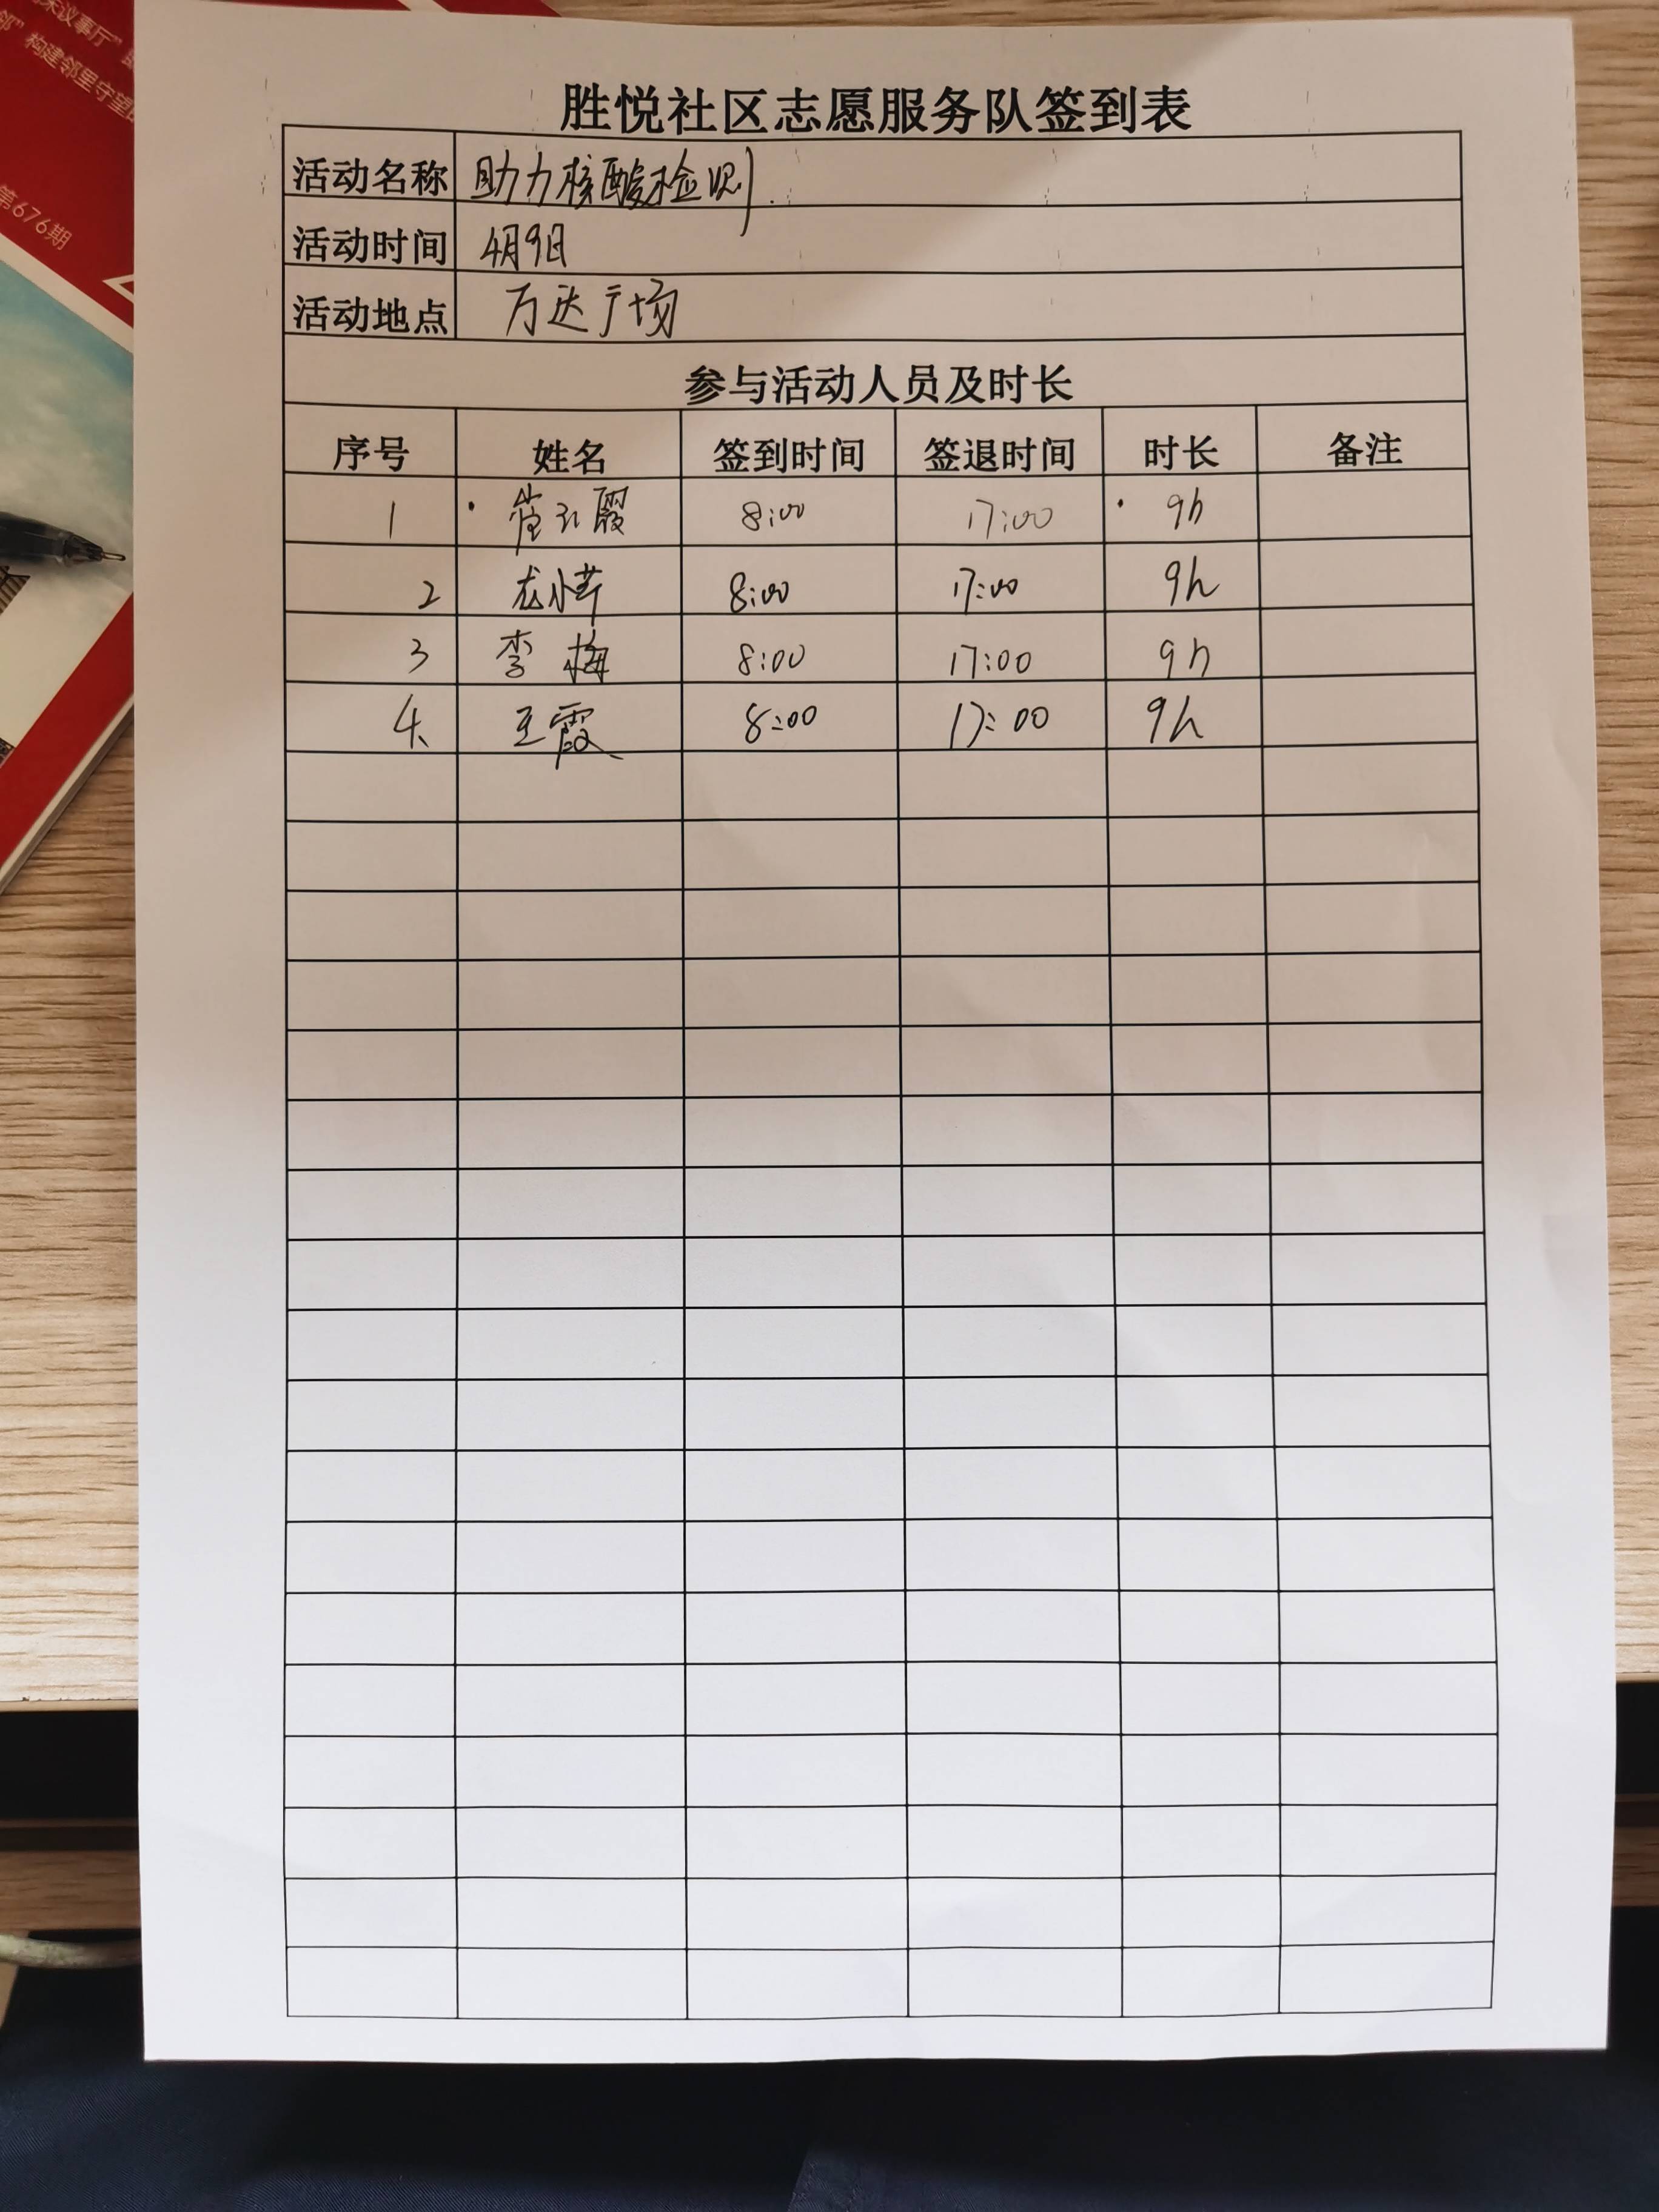 末议事厅"
邻"构建邻里守望
第676期
胜悦社区志愿服务队签到表
活动名称 助力核酸检测.
活动时间 4月9日
活动地点 万达广场
参与活动人员及时长
序号 姓名 签到时间 签退时间 时长 备注
1 崔红霞 8:00 17:00 9h
2 龙小芹 8:00 17:00 9h
3 李梅 8:00 17:00 9h
4 王霞 8:00 17:00 9h